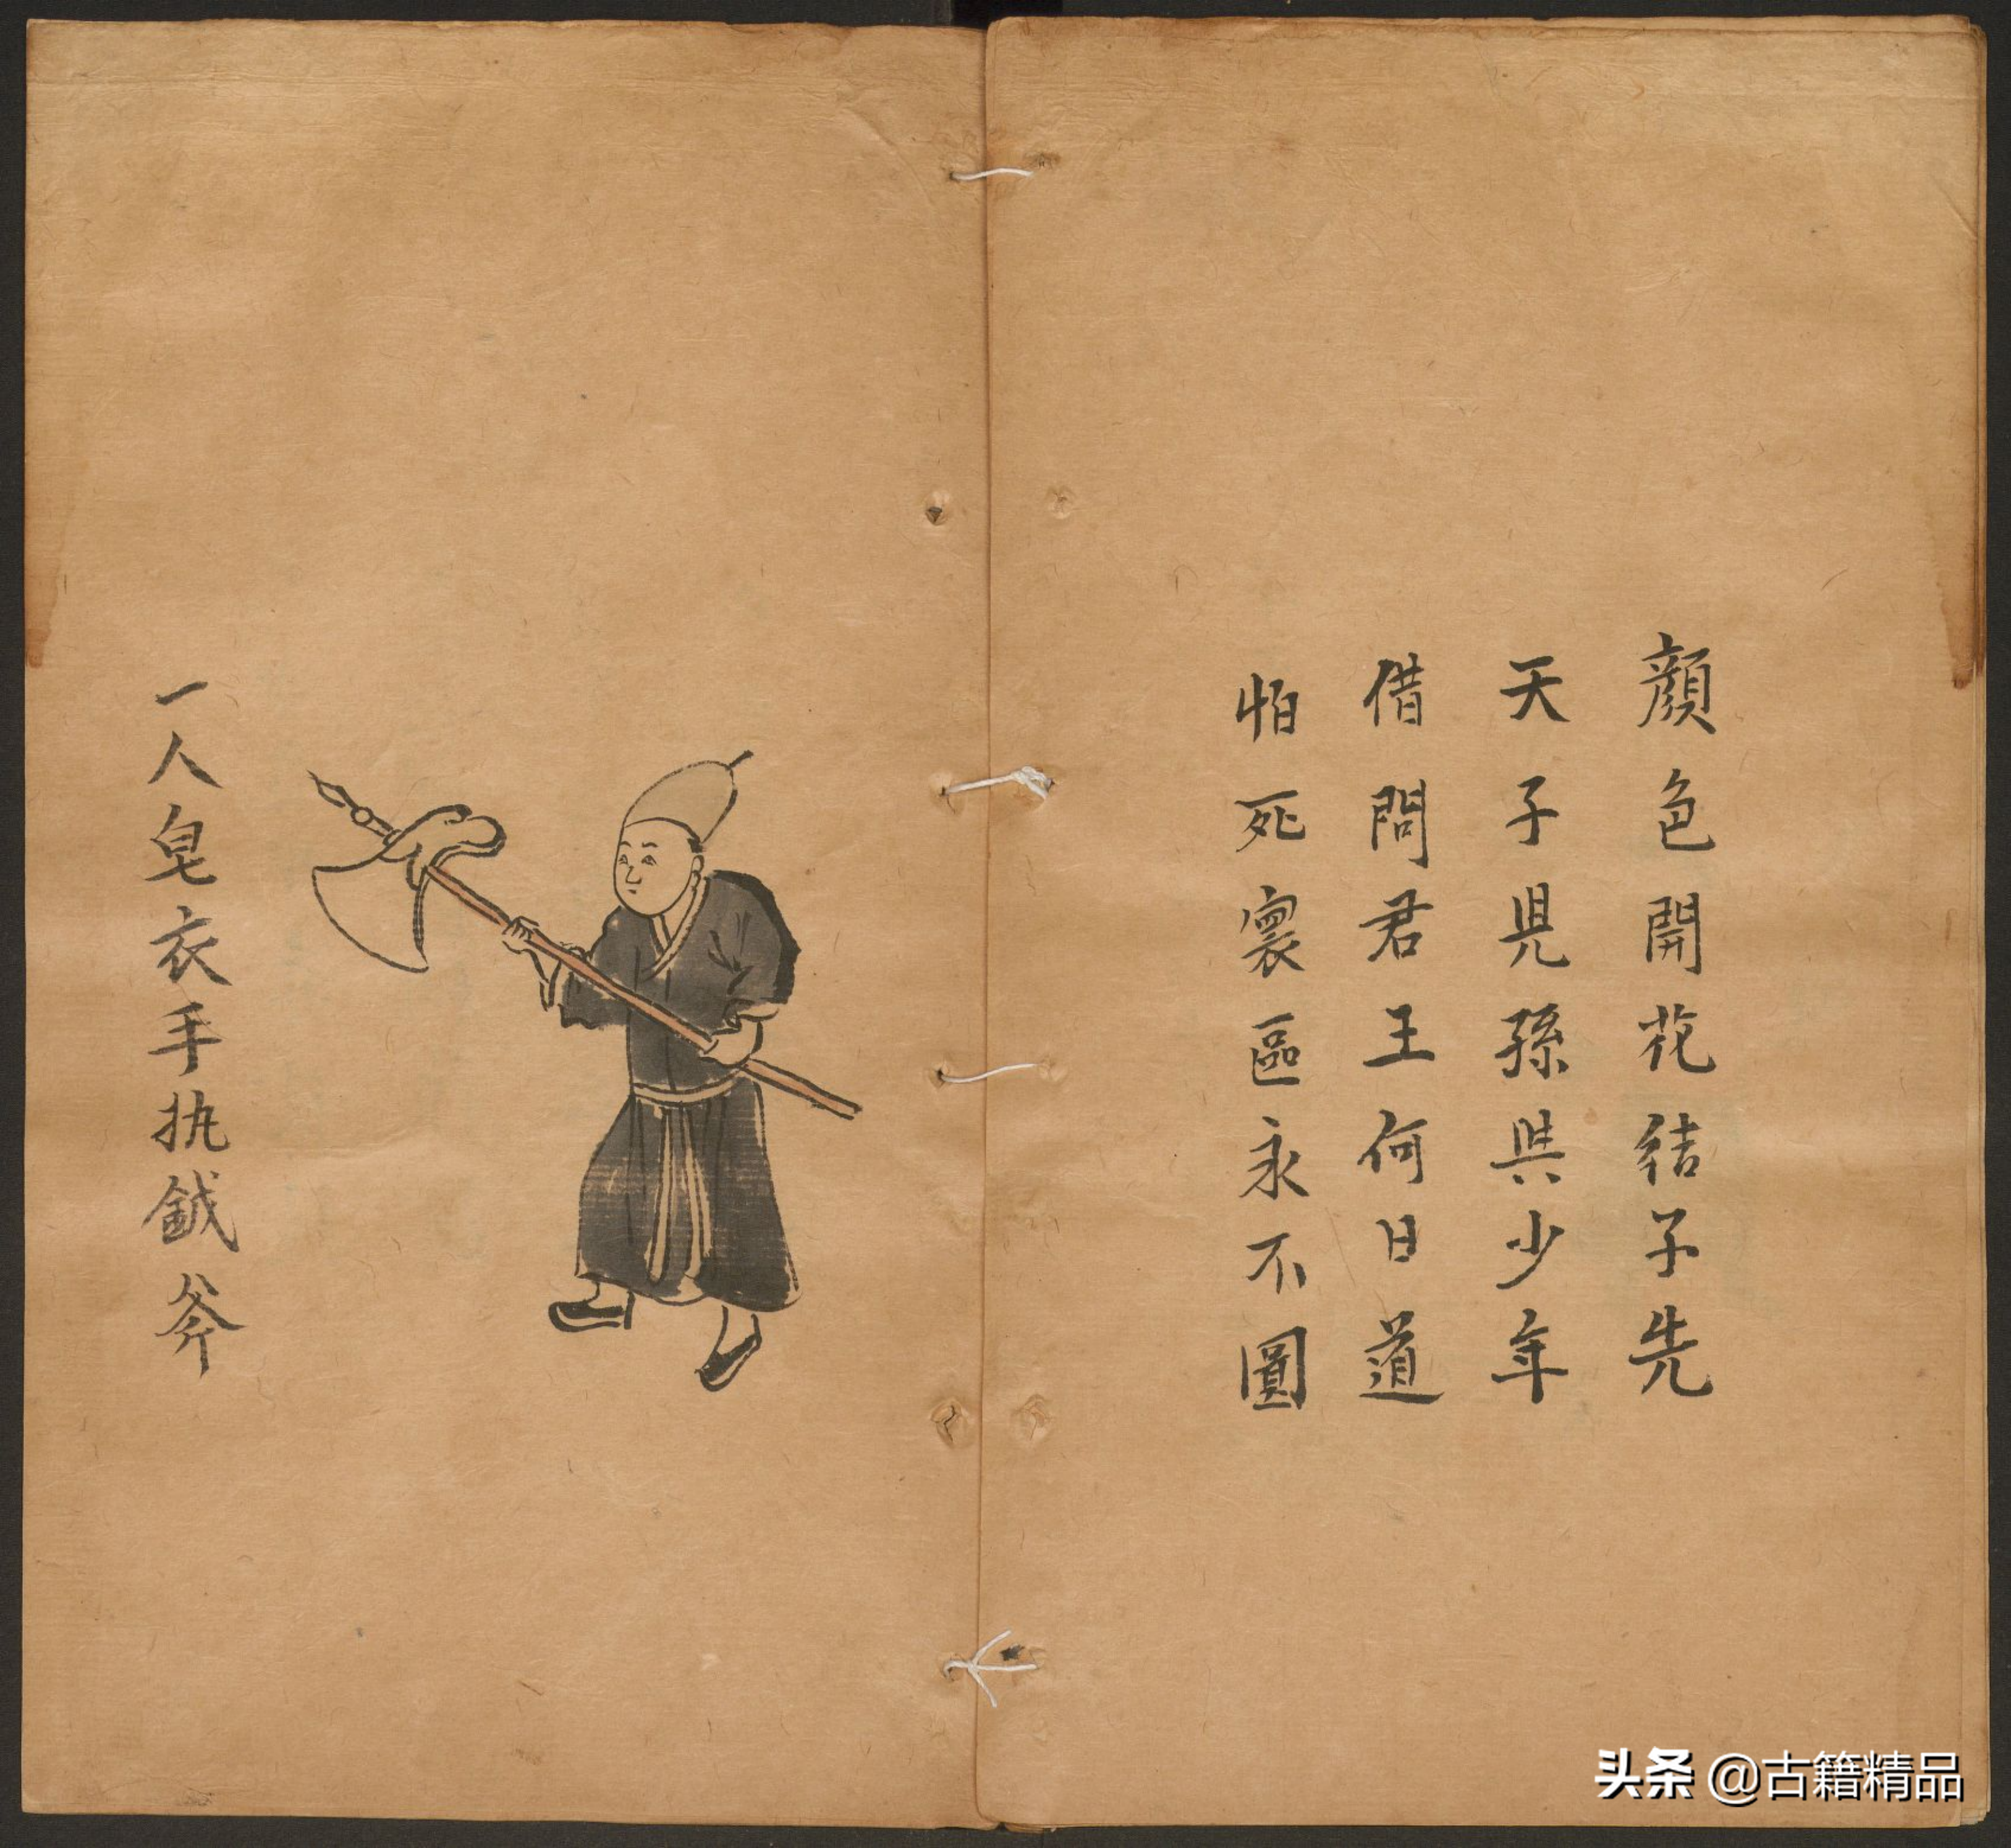 顏色開花結子先
天子見孫與少年
借問君王何日道
怕死寰區永不圓
一人皂衣手执鉞斧
头条 @古籍精品